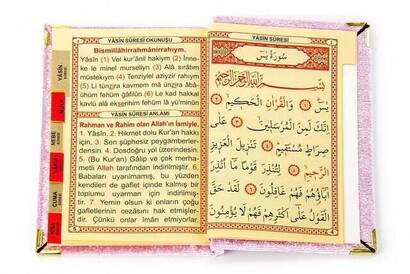 YÂSÎN SÛRESİ OKUNUŞU
Bismillâhirrahmânirrahıym.
Yâsîn (1) Vel kur'ânil hakiym (2) İnne-
ke le minel murseliyn (3) Alâ sırâtım
müstekıym (4) Tenziylel aziyzir rahıym
(5) Li tünzira kavmem mâ ünzira âbâ-
ühüm fehüm ğâfilûn (6) Le kad hakkal
kavlü alâ ekserihim fehüm lâ yü'minûn
YÂSÎN SÛRESİ ANLAMI
Rahman ve Rahim olan Allah'ın İsmiyle.
1. Yâsîn, 2. Hikmet dolu Kur'an hakkı
için, 3. Sen şüphesiz peygamberler-
densin. 4. Dosdoğru yol üzerindesin.
5. (Bu Kur'an) Gâlip ve çok merha-
metli Allah tarafından indirilmiştir. 6.
Babaları uyarılmamış, bu yüzden
kendileri de gaflet içinde kalmış bir
toplumu uyarman için indirilmiş-
tir. 7. Yemin olsun ki onların çoğu
gafletlerinin cezasını hak etmişler-
dir. Çünkü onlar îman etmiyorlar.
YÂSİN
NEBE
CUMA
YÂSÎN SÛRESİ
سُورَةُ يٰسٓ
بِسْمِ اللّٰهِ الرَّحْمٰنِ الرَّحِيمِ
يٰسٓ ﴿١﴾ وَالْقُرْاٰنِ الْحَكِيمِ ﴿٢﴾
اِنَّكَ لَمِنَ الْمُرْسَلِينَ ﴿٣﴾ عَلٰى
صِرَاطٍ مُسْتَقِيمٍ ﴿٤﴾ تَنْزِيلَ الْعَزِيزِ
الرَّحِيمِ ﴿٥﴾ لِتُنْذِرَ قَوْمًا مَٓا اُنْذِرَ
اٰبَٓاؤُهُمْ فَهُمْ غَافِلُونَ ﴿٦﴾ لَقَدْ حَقَّ
الْقَوْلُ عَلٰٓى اَكْثَرِهِمْ فَهُمْ لَا يُؤْمِنُونَ